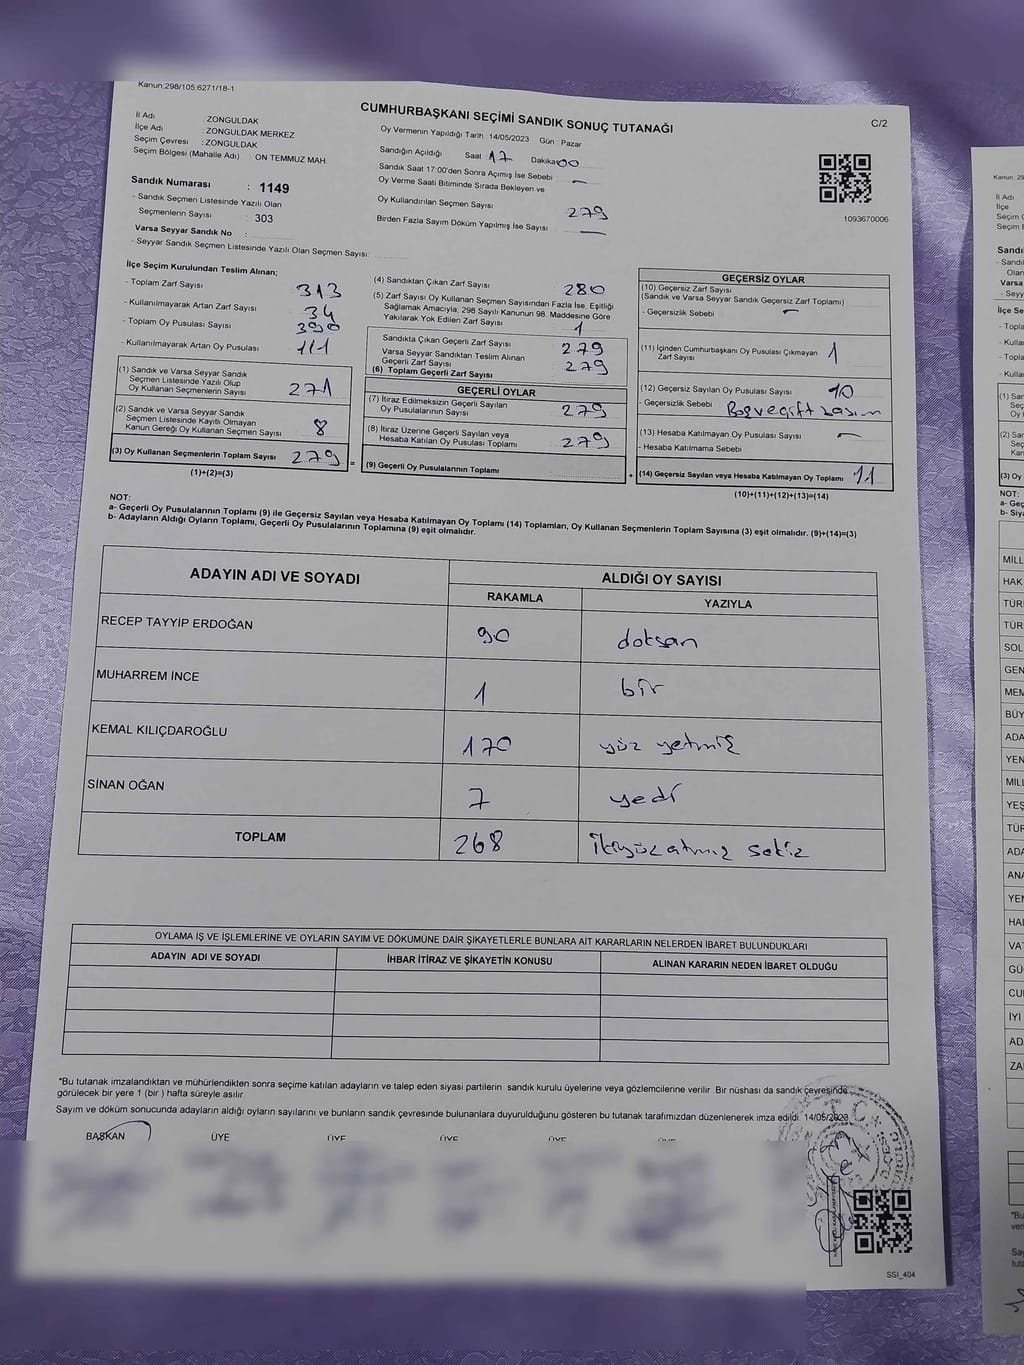 Kanun;298/105;6271/18-1
CUMHURBAŞKANI SEÇİMİ SANDIK SONUÇ TUTANAĞI
C/2
İl Adı : ZONGULDAK
İlçe Adı : ZONGULDAK MERKEZ
Seçim Çevresi : ZONGULDAK
Seçim Bölgesi (Mahalle Adı) ON TEMMUZ MAH.
Oy Vermenin Yapıldığı Tarih :14/05/2023 Gün Pazar
Sandığın Açıldığı Saat 17 Dakika:00
Sandık Saat 17:00'den Sonra Açımış İse Sebebi : –
Oy Verme Saati Bitiminde Sırada Bekleyen ve
Oy Kullandırılan Seçmen Sayısı 279
Birden Fazla Sayım Döküm Yapılmış İse Sayısı : —
1093670006
Sandık Numarası : 1149
- Sandık Seçmen Listesinde Yazılı Olan
Seçmenlerin Sayısı : 303
Varsa Seyyar Sandık No :
- Seyyar Sandık Seçmen Listesinde Yazılı Olan Seçmen Sayısı:
İlçe Seçim Kurulundan Teslim Alınan;
- Toplam Zarf Sayısı 313
- Kullanılmayarak Artan Zarf Sayısı 34
- Toplam Oy Pusulası Sayısı 390
- Kullanılmayarak Artan Oy Pusulası 111
(1) Sandık ve Varsa Seyyar Sandık
Seçmen Listesinde Yazılı Olup
Oy Kullanan Seçmenlerin Sayısı 271
(2) Sandık ve Varsa Seyyar Sandık
Seçmen Listesinde Kayıtlı Olmayan
Kanun Gereği Oy Kullanan Seçmen Sayısı 8
(3) Oy Kullanan Seçmenlerin Toplam Sayısı 279 =
(1)+(2)=(3)
(4) Sandıktan Çıkan Zarf Sayısı 280
(5) Zarf Sayısı Oy Kullanan Seçmen Sayısından Fazla İse, Eşitliği
Sağlamak Amacıyla; 298 Sayılı Kanunun 98. Maddesine Göre
Yakılarak Yok Edilen Zarf Sayısı 1
Sandıkta Çıkan Geçerli Zarf Sayısı 279
Varsa Seyyar Sandıktan Teslim Alınan
Geçerli Zarf Sayısı
(6) Toplam Geçerli Zarf Sayısı 279
GEÇERLİ OYLAR
(7) İtiraz Edilmeksizin Geçerli Sayılan
Oy Pusulalarının Sayısı 279
(8) İtiraz Üzerine Geçerli Sayılan veya
Hesaba Katılan Oy Pusulası Toplamı 279
(9) Geçerli Oy Pusulalarının Toplamı +
GEÇERSİZ OYLAR
(10) Geçersiz Zarf Sayısı
(Sandık ve Varsa Seyyar Sandık Geçersiz Zarf Toplamı)
- Geçersizlik Sebebi –
(11) İçinden Cumhurbaşkanı Oy Pusulası Çıkmayan
Zarf Sayısı 1
(12) Geçersiz Sayılan Oy Pusulası Sayısı 10
- Geçersizlik Sebebi
(13) Hesaba Katılmayan Oy Pusulası Sayısı –
- Hesaba Katılmama Sebebi
(14) Geçersiz Sayılan veya Hesaba Katılmayan Oy Toplamı 11
(10)+(11)+(12)+(13)=(14)
NOT:
a- Geçerli Oy Pusulalarının Toplamı (9) ile Geçersiz Sayılan veya Hesaba Katılmayan Oy Toplamı (14) Toplamları, Oy Kullanan Seçmenlerin Toplam Sayısına (3) eşit olmalıdır. (9)+(14)=(3)
b- Adayların Aldığı Oyların Toplamı, Geçerli Oy Pusulalarının Toplamına (9) eşit olmalıdır.
ADAYIN ADI VE SOYADI
ALDIĞI OY SAYISI
RAKAMLA YAZIYLA
RECEP TAYYİP ERDOĞAN 90 doksan
MUHARREM İNCE 1 bir
KEMAL KILIÇDAROĞLU 170 yüz yetmiş
SİNAN OĞAN 7 yedi
TOPLAM 268 ikiyüz atmış sekiz
OYLAMA İŞ VE İŞLEMLERİNE VE OYLARIN SAYIM VE DÖKÜMÜNE DAİR ŞİKAYETLERLE BUNLARA AİT KARARLARIN NELERDEN İBARET BULUNDUKLARI
ADAYIN ADI VE SOYADI İHBAR İTİRAZ VE ŞİKAYETİN KONUSU ALINAN KARARIN NEDEN İBARET OLDUĞU
*Bu tutanak imzalandıktan ve mühürlendikten sonra seçime katılan adayların ve talep eden siyasi partilerin sandık kurulu üyelerine veya gözlemcilerine verilir. Bir nüshası da sandık çevresinde
görülecek bir yere 1 (bir ) hafta süreyle asılır.
Sayım ve döküm sonucunda adayların aldığı oyların sayılarını ve bunların sandık çevresinde bulunanlara duyurulduğunu gösteren bu tutanak tarafımızdan düzenlenerek imza edildi. 14/05/2023
BAŞKAN ÜYE ÜYE ÜYE ÜYE ÜYE
SSI_404